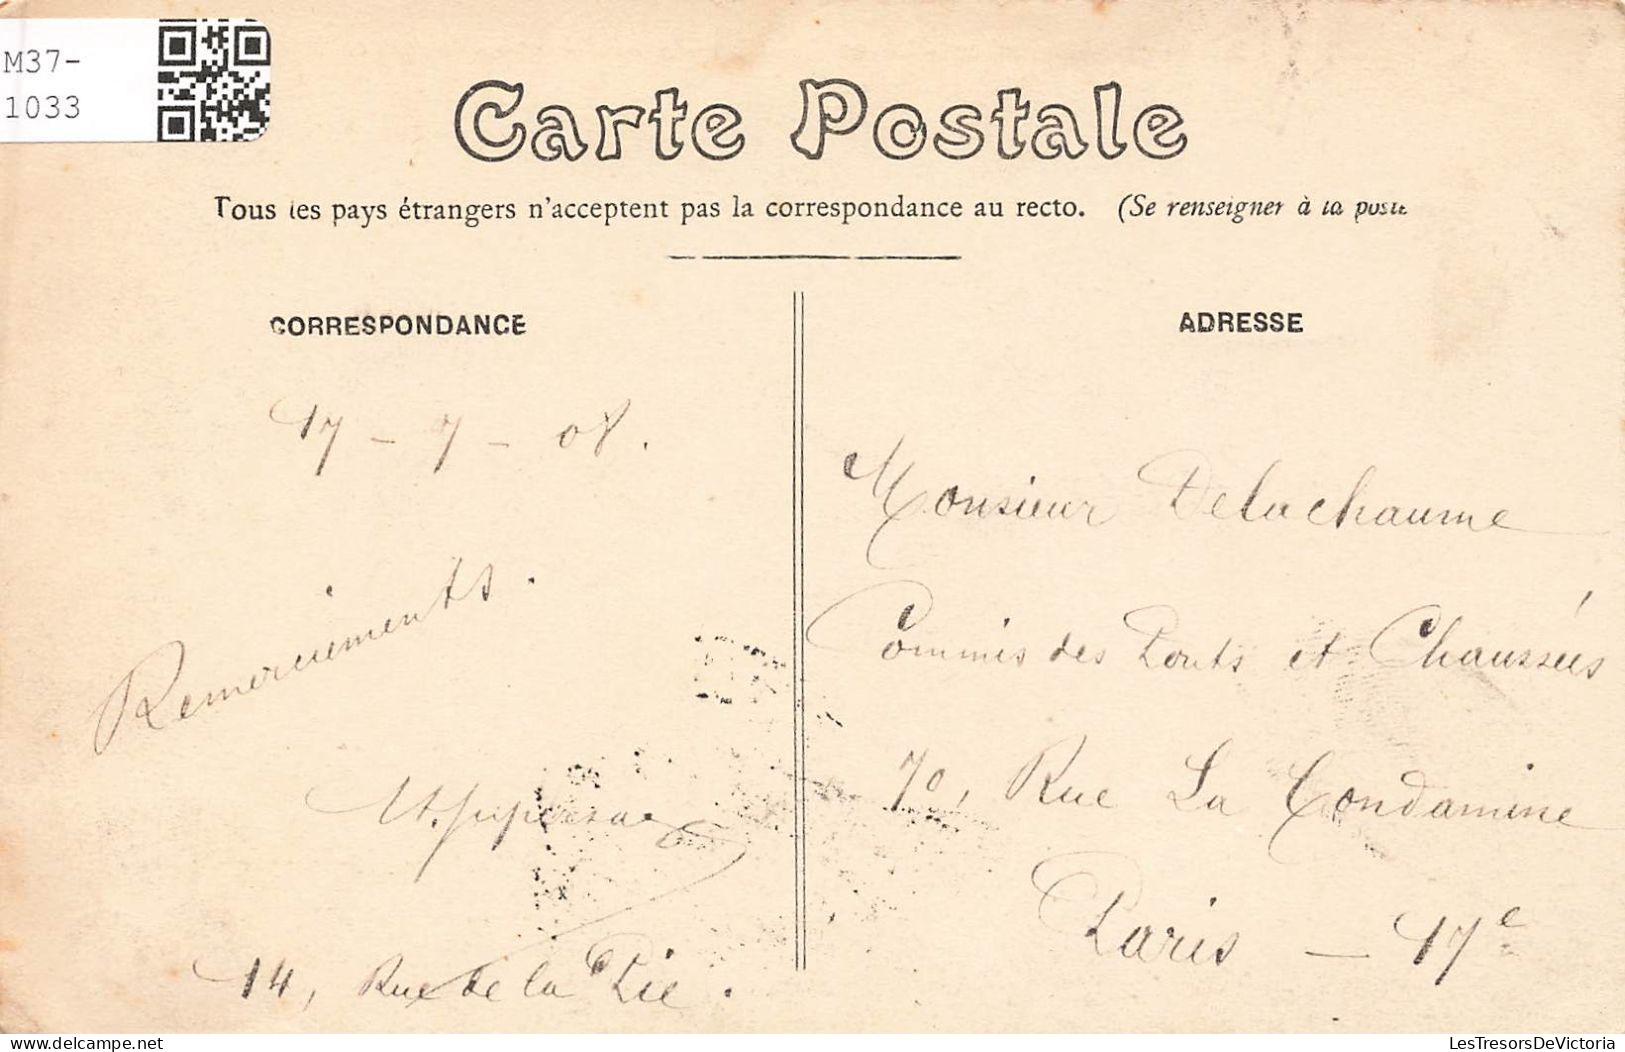 M37-
1033
Carte Postale
Tous les pays étrangers n'acceptent pas la correspondance au recto. (Se renseigner à la poste
CORRESPONDANCE
17 - 7 - 08.
Remerciements.
14, Rue de la Pie.
ADRESSE
Monsieur Delachaume
Commis des Ponts et Chaussées
70, Rue La Condamine
Paris - 17e
delcampe.net
LesTresorsDeVictoria